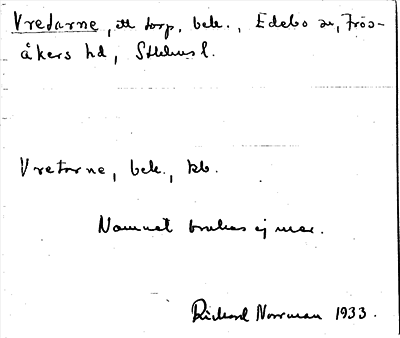 Vretarne, ett torp, bek., Edebo sn, Frös-
åkers hd, Sthlms l.
Vretarne, bek., kb.
Namnet brukas ej mer.
Rickard Norrman 1933.